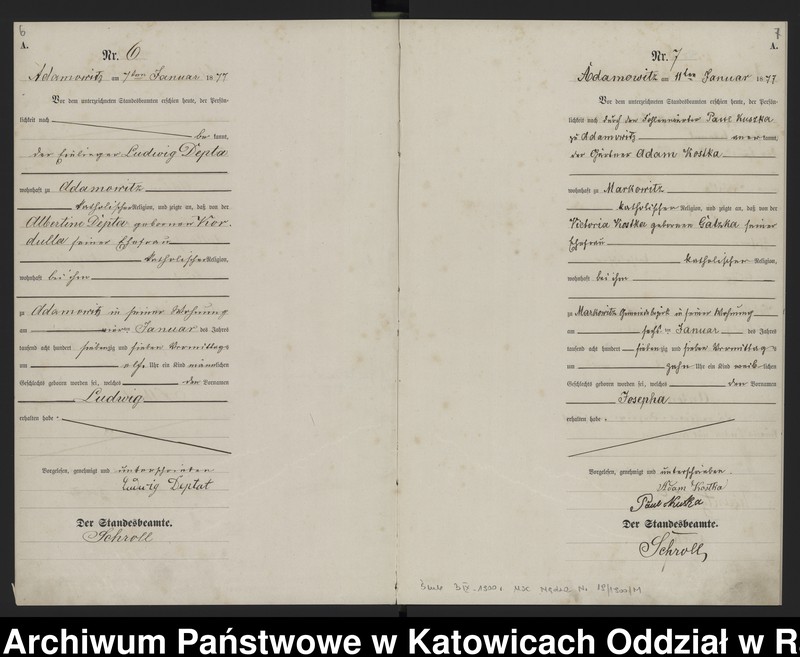 6
A.
Nr. 6
Adamowitz am 7ten Januar 1877
Vor dem unterzeichneten Standesbeamten erschien heute, der Persön-
lichkeit nach
be kannt,
der Ludwig Depta
wohnhaft zu Adamowitz
katholischer Religion, und zeigte an, daß von der
Albertine Depta geborenen Kior-
dulla seiner Ehefrau
katholischer Religion,
wohnhaft bei ihm
zu Adamowitz in seiner Wohnung
am vier ten Januar des Jahres
tausend acht hundert siebenzig und sieben Vormittags
um elf Uhr ein Kind männlichen
Geschlechts geboren worden sei, welches den Vornamen
Ludwig
erhalten habe.
Vorgelesen, genehmigt und unterschrieben
Ludwig Deptat
Der Standesbeamte.
Schroll
7
A.
Nr. 7
Adamowitz am 11ten Januar 1877
Vor dem unterzeichneten Standesbeamten erschien heute, der Persön-
lichkeit nach durch den Paul Kuszka
zu Adamowitz aner kannt,
der Gärtner Adam Kostka
wohnhaft zu Markowitz
katholischer Religion, und zeigte an, daß von der
Victoria Kostka geborenen Gatzka seiner
Ehefrau
katholischer Religion,
wohnhaft bei ihm
zu Markowitz Gemeindebezirk in seiner Wohnung
am sechs ten Januar des Jahres
tausend acht hundert siebenzig und sieben Vormittags
um zehn Uhr ein Kind weib lichen
Geschlechts geboren worden sei, welches den Vornamen
Josepha
erhalten habe.
Vorgelesen, genehmigt und unterschrieben
Adam Kostka
Paul Kuska
Der Standesbeamte.
Schroll
Archiwum Państwowe w Katowicach Oddział w R